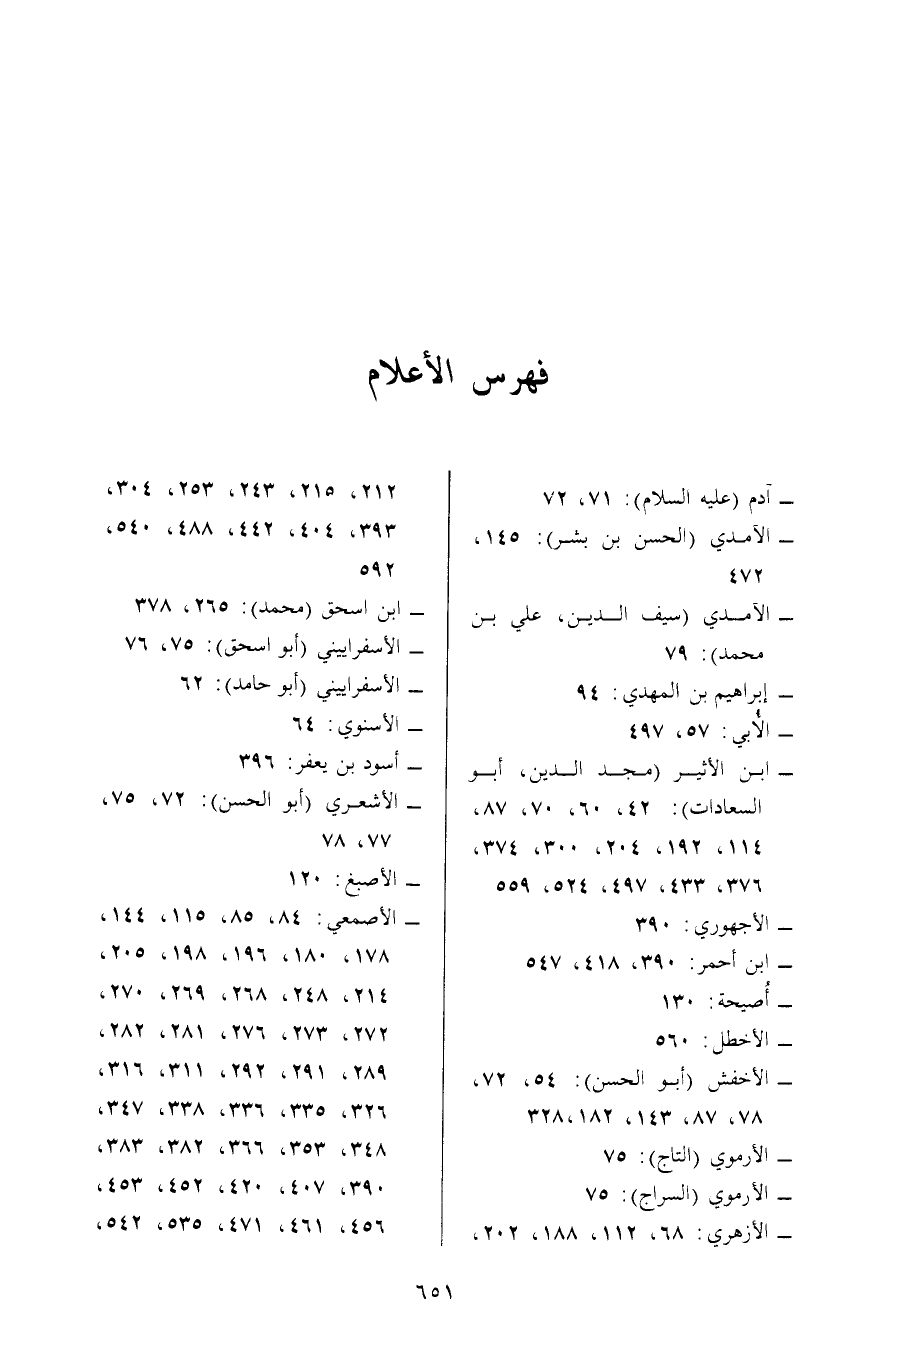 فهرس الأعلام
ـ آدم (عليه السلام): ٧١، ٧٢
ـ الآمـدي (الحسن بن بشـر): ١٤٥،
٤٧٢
ـ الآمــدي (سيف الــديـن، علي بـن
محمد): ٧٩
ـ إبراهيم بن المهدي: ٩٤
ـ الأُبي: ٥٧، ٤٩٧
ـ ابـن الأثيـر (مـجـد الـديـن، أبـو
السعادات): ٤٢، ٦٠، ٧٠، ٨٧،
١١٤، ١٩٢، ٢٠٤، ٣٠٠، ٣٧٤،
٣٧٦، ٤٣٣، ٤٩٧، ٥٢٤، ٥٥٩
ـ الأجهوري: ٣٩٠
ـ ابن أحمر: ٣٩٠، ٤١٨، ٥٤٧
ـ أُصيحة: ١٣٠
ـ الأخطل: ٥٦٠
ـ الأخفش (أبـو الحسن): ٥٤، ٧٢،
٧٨، ٨٧، ١٤٣، ١٨٢، ٣٢٨
ـ الأرموي (التاج): ٧٥
ـ الأرموي (السراج): ٧٥
ـ الأزهري: ٦٨، ١١٢، ١٨٨، ٢٠٢،
٢١٢، ٢١٥، ٢٤٣، ٢٥٣، ٣٠٤،
٣٩٣، ٤٠٤، ٤٤٢، ٤٨٨، ٥٤٠،
٥٩٢
ـ ابن اسحق (محمد): ٢٦٥، ٣٧٨
ـ الأسفراييني (أبو اسحق): ٧٥، ٧٦
ـ الأسفراييني (أبو حامد): ٦٢
ـ الأسنوي: ٦٤
ـ أسود بن يعفر: ٣٩٦
ـ الأشعـري (أبو الحسن): ٧٢، ٧٥،
٧٧، ٧٨
ـ الأصبغ: ١٢٠
ـ الأصمعي: ٨٤، ٨٥، ١١٥، ١٤٤،
١٧٨، ١٨٠، ١٩٦، ١٩٨، ٢٠٥،
٢١٤، ٢٤٨، ٢٦٨، ٢٦٩، ٢٧٠،
٢٧٢، ٢٧٣، ٢٧٦، ٢٨١، ٢٨٢،
٢٨٩، ٢٩١، ٢٩٢، ٣١١، ٣١٦،
٣٢٦، ٣٣٥، ٣٣٦، ٣٣٨، ٣٤٧،
٣٤٨، ٣٥٣، ٣٦٦، ٣٨٢، ٣٨٣،
٣٩٠، ٤٠٧، ٤٢٠، ٤٥٢، ٤٥٣،
٤٥٦، ٤٦١، ٤٧١، ٥٣٥، ٥٤٢،
٦٥١